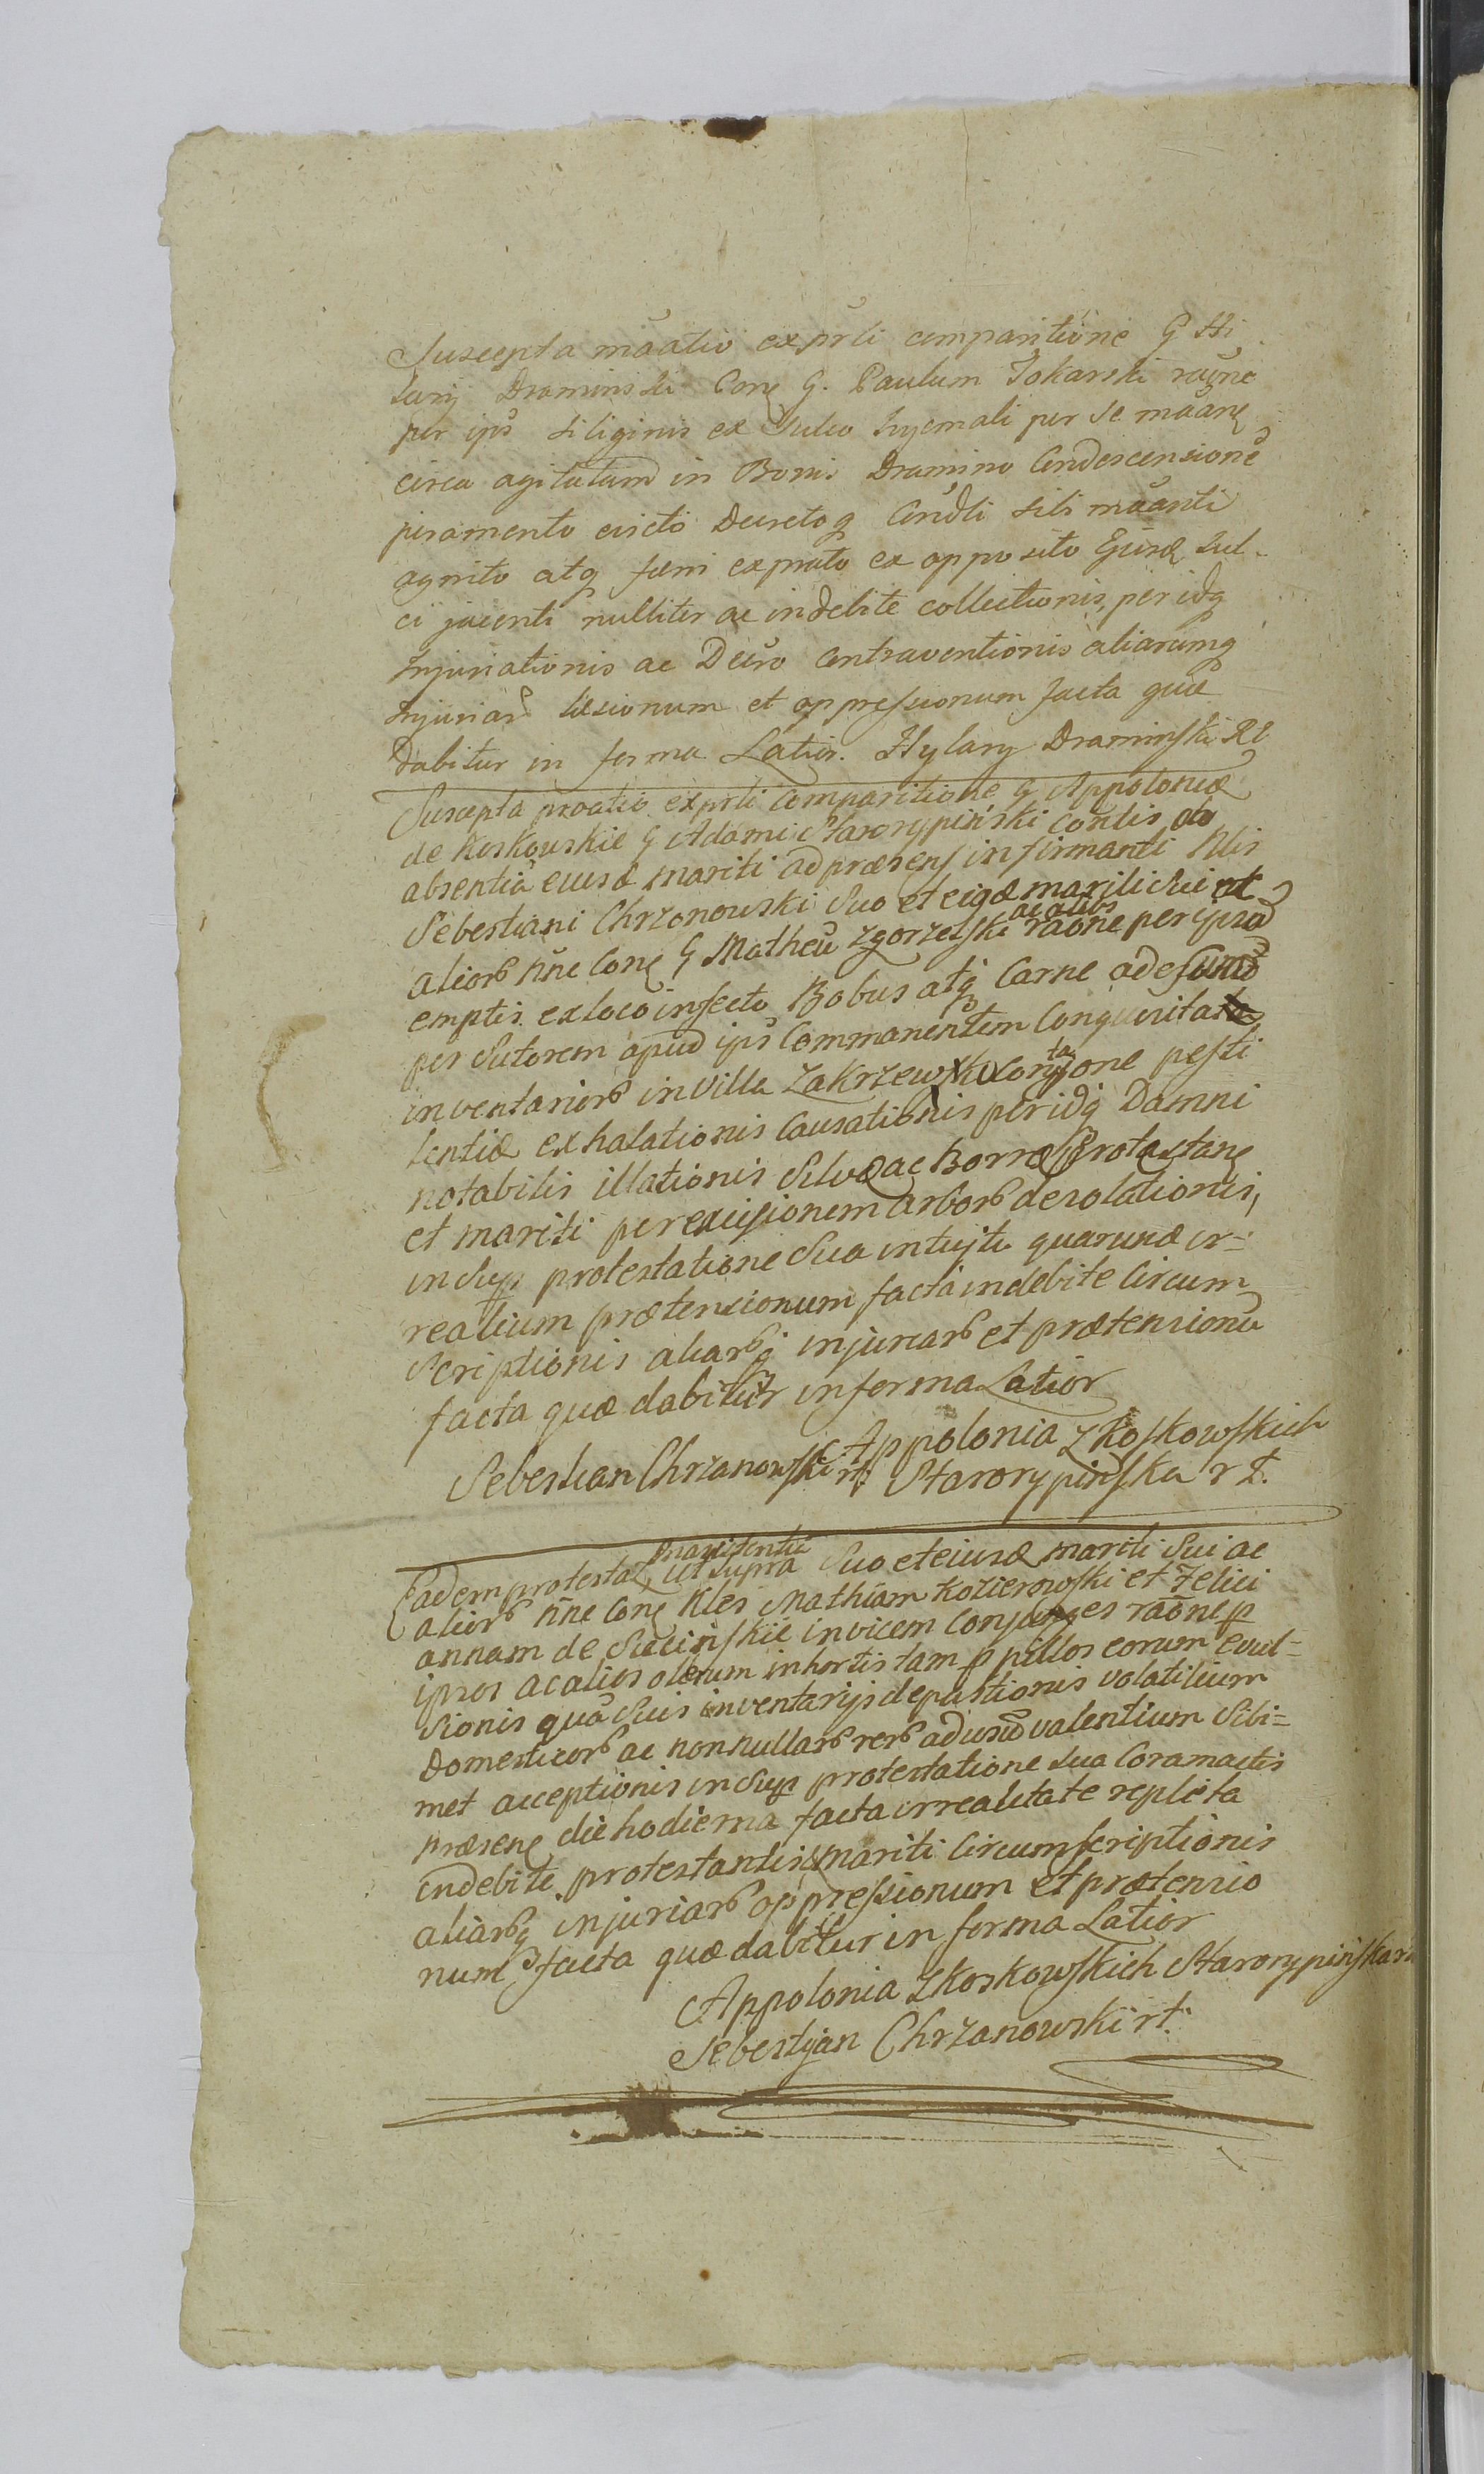 Suscepta māatio ex prli comparitione G Hi
lary Draminski Conę G. Paulum Tokarski raōne
per ips siliginis ex Sulco hyemali per se māanę
circa agitatam in Bonis Dramino Condescensionē
juramento evicto Decretoq Condli sibi māanti
agnito atq fæni ex prato ex opposito Ejusd Sul-
ci jacenti nulliter ac indebite collectionis, per idq
Injuriationis ac Decro Contraventionis aliarumq
Injuriar læsionum et oppressionum facta quæ
dabitur in forma Latior. Hylary Draminski RL
Suscepta proatio exprli Comparitione G Appoloniæ
de Koskowskie G Adami Starorypiński Contis ob
absentiā eiusd mariti ad præsens infirmanti Nlis
Sebestiani Chrzonowski Suo et eigd mariti sui et
alior nne Conę G Matheū Zgorzelski ac alios raōne per ipsūd
emptis ex loco infecto Bobus atq Carne ad esum
per Sutorem apud ips Commanentem Conquisita
inventarior in villa Zakrzewko Contagione pesti
lentiæ exhalationis Causationis per idq Damni
notabilis illationis Silvæ ac Borræ Protestanę
et mariti per excisionem arbor desolationis,
in Sup protestatione Sua intuitu quarund ir=
realium prætensionum facta indebite Circum
Scriptionis aliarq injuriar et prætensionū
facta quæ dabitur in forma Latior
Sebestian Chrzanowski rł Appolonia z Koskowskich
Starorypińska r ł.
Eadem protestat manutentia ut supra Suo et eiusd mariti Sui ac
alior nne Conę Nles Mathiam Kozierowski et Felici
annam de Sucinskie invicem Conjuges raōne p
ipsos ac alios olerum in hortis tam p pullos eorum evul=
sionis quā Suis inventarijs depastionis volatilium
Domesticor ac nonnullar rer ad usum valentium Sibi=
met acceptionis in Sup protestatione sua Coram actis
præsenę die hodierna facta irrealitate repleta
indebite protestantis mariti Circumscriptionis
aliarq injuriar oppressionum et prætensio
num facta quæ dabitur in forma Latior
Appolonia z Koskowskich Starorypińska r
Sebestyan Chrzanowski rł.